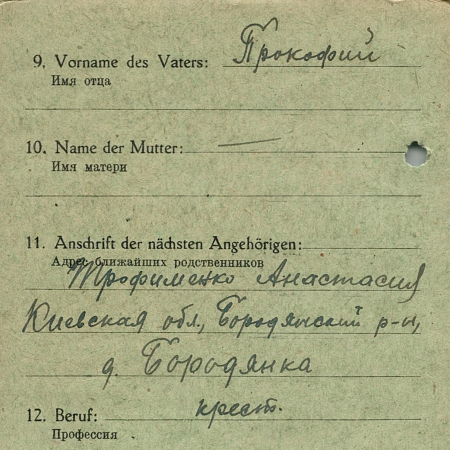 9. Vorname des Vaters: Прокофий
Имя отца
10. Name der Mutter: —
Имя матери
11. Anschrift der nächsten Angehörigen:
Адрес ближайших родственников
Трофименко Анастасия
Киевская обл., Бородянский р-н,
д. Бородянка
12. Beruf: крест.
Профессия